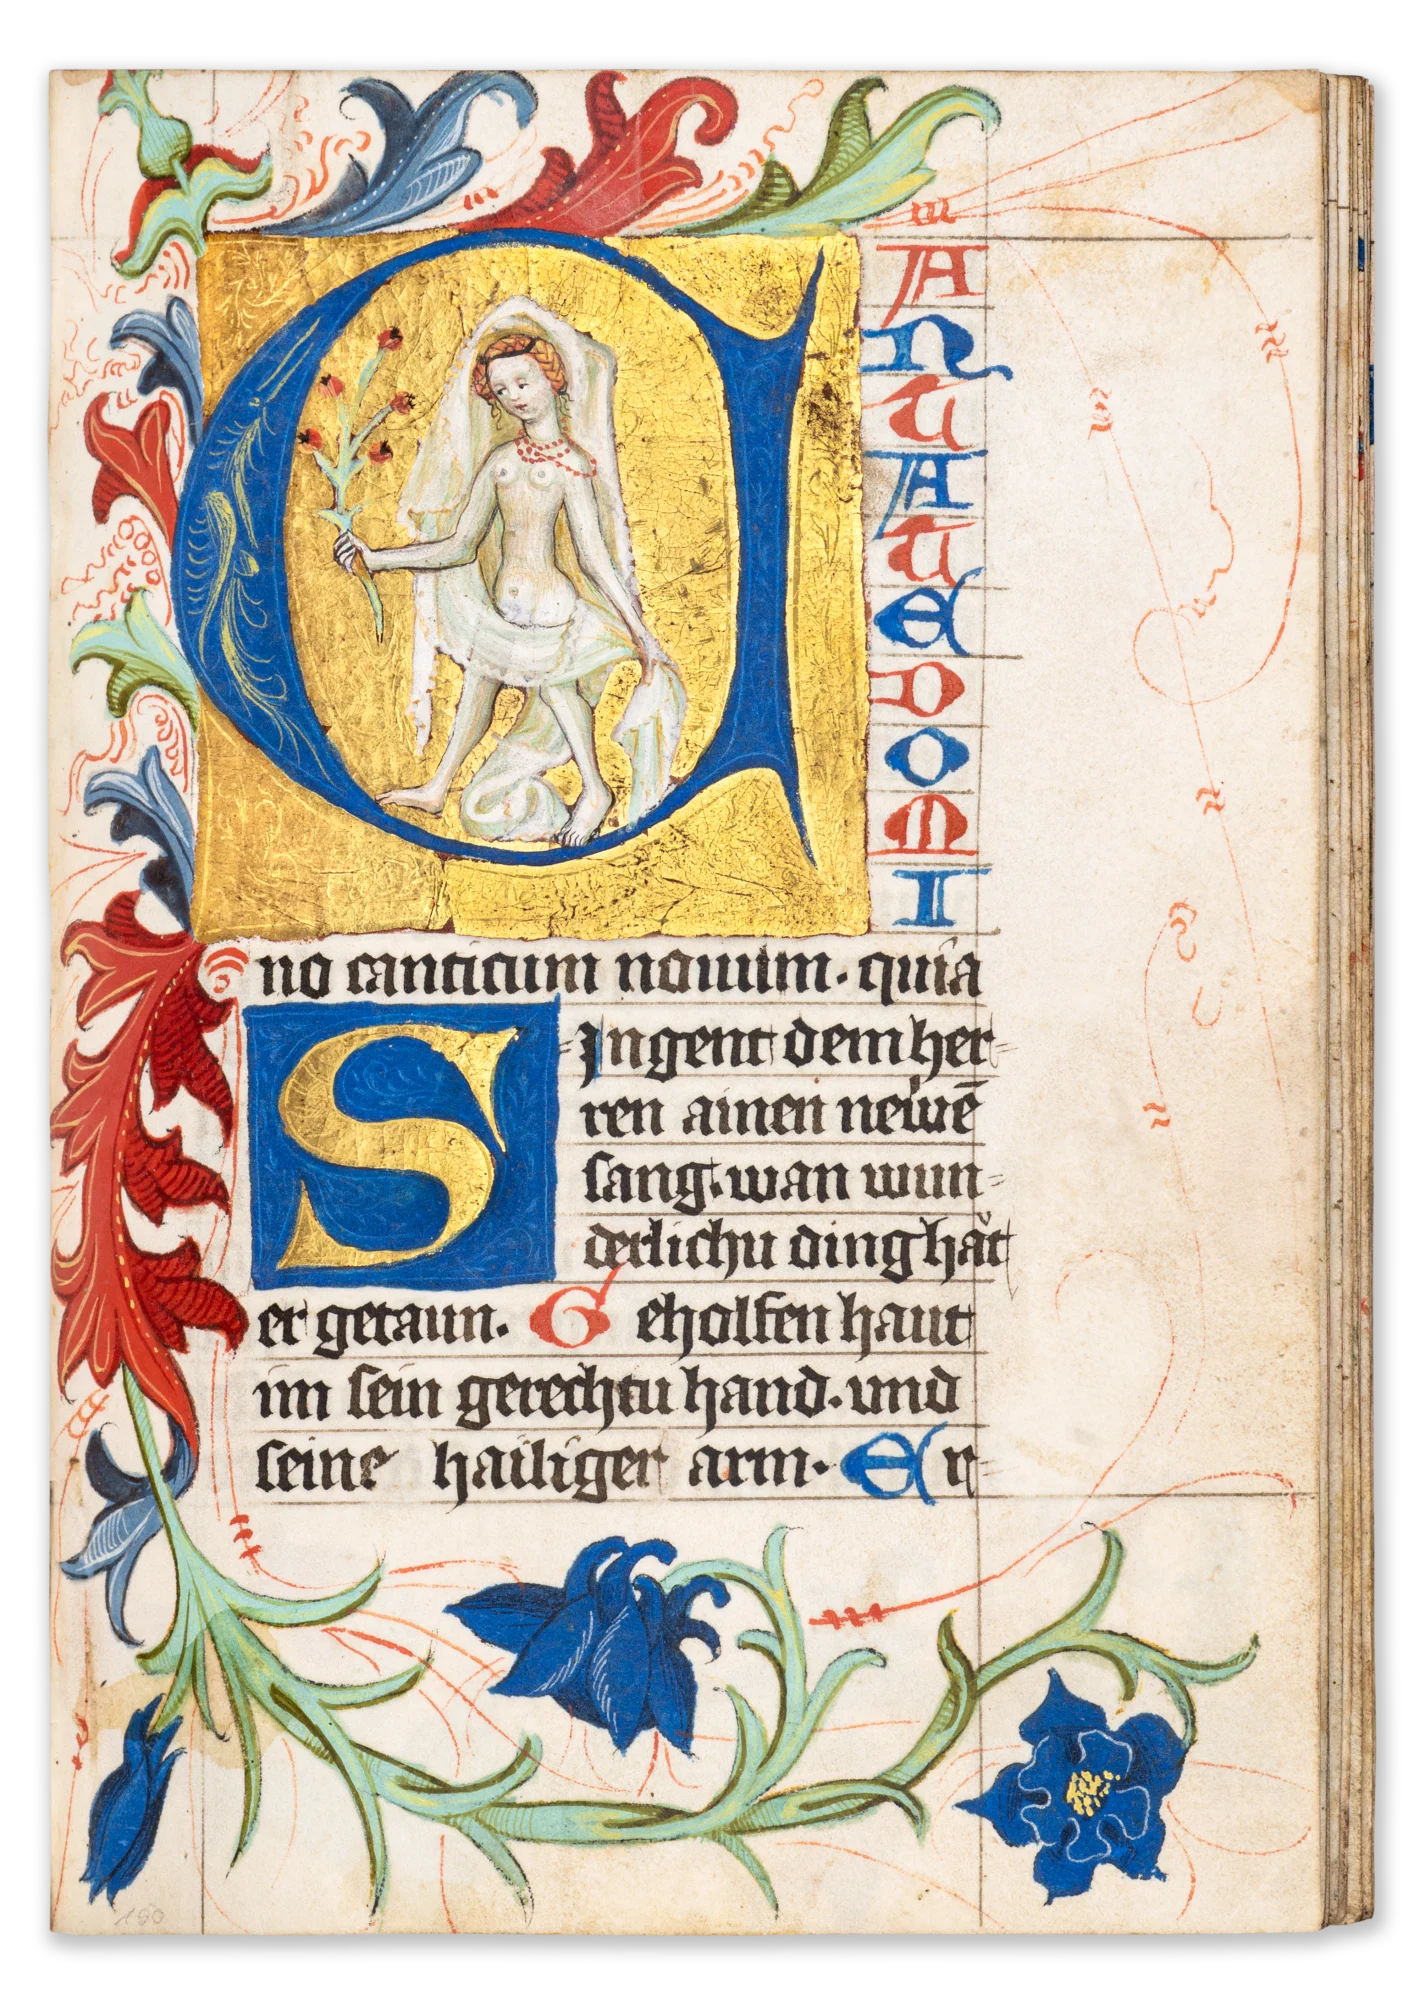 CANTATE DOMI
no canticum nouum. quia
SJngent dem her=
ren ainen newē
sang. wan wun=
derlichu ding hǎt
er getaun. Geholfen haut
im sein gerechtu hand. vnd
seine hailiger arm. Er=